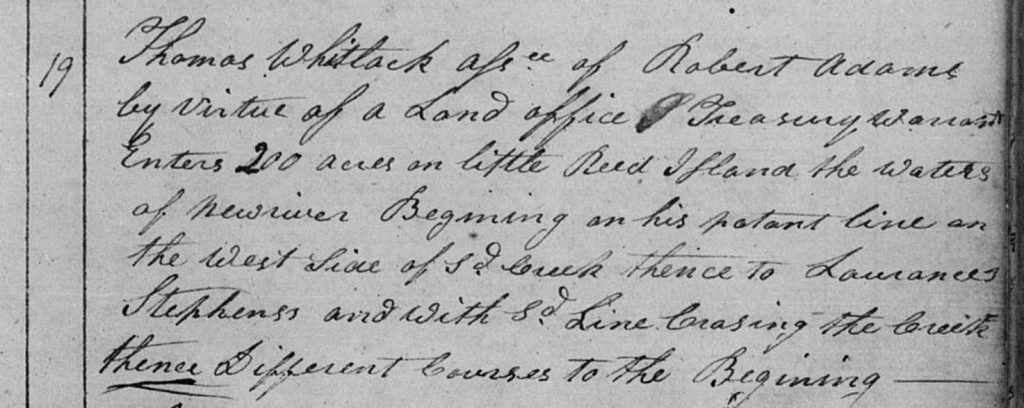 19 Thomas Whitlock Assee of Robert Adams
by Virtue of a Land office Treasury Warrant
Enters 200 acres on little Reed Island the waters
of Newriver Begining on his patant line on
the West Side of Sd Creek thence to Laurances
Stephenss and with Sd Line Crasing the Creek
thence Different Courses to the Begining